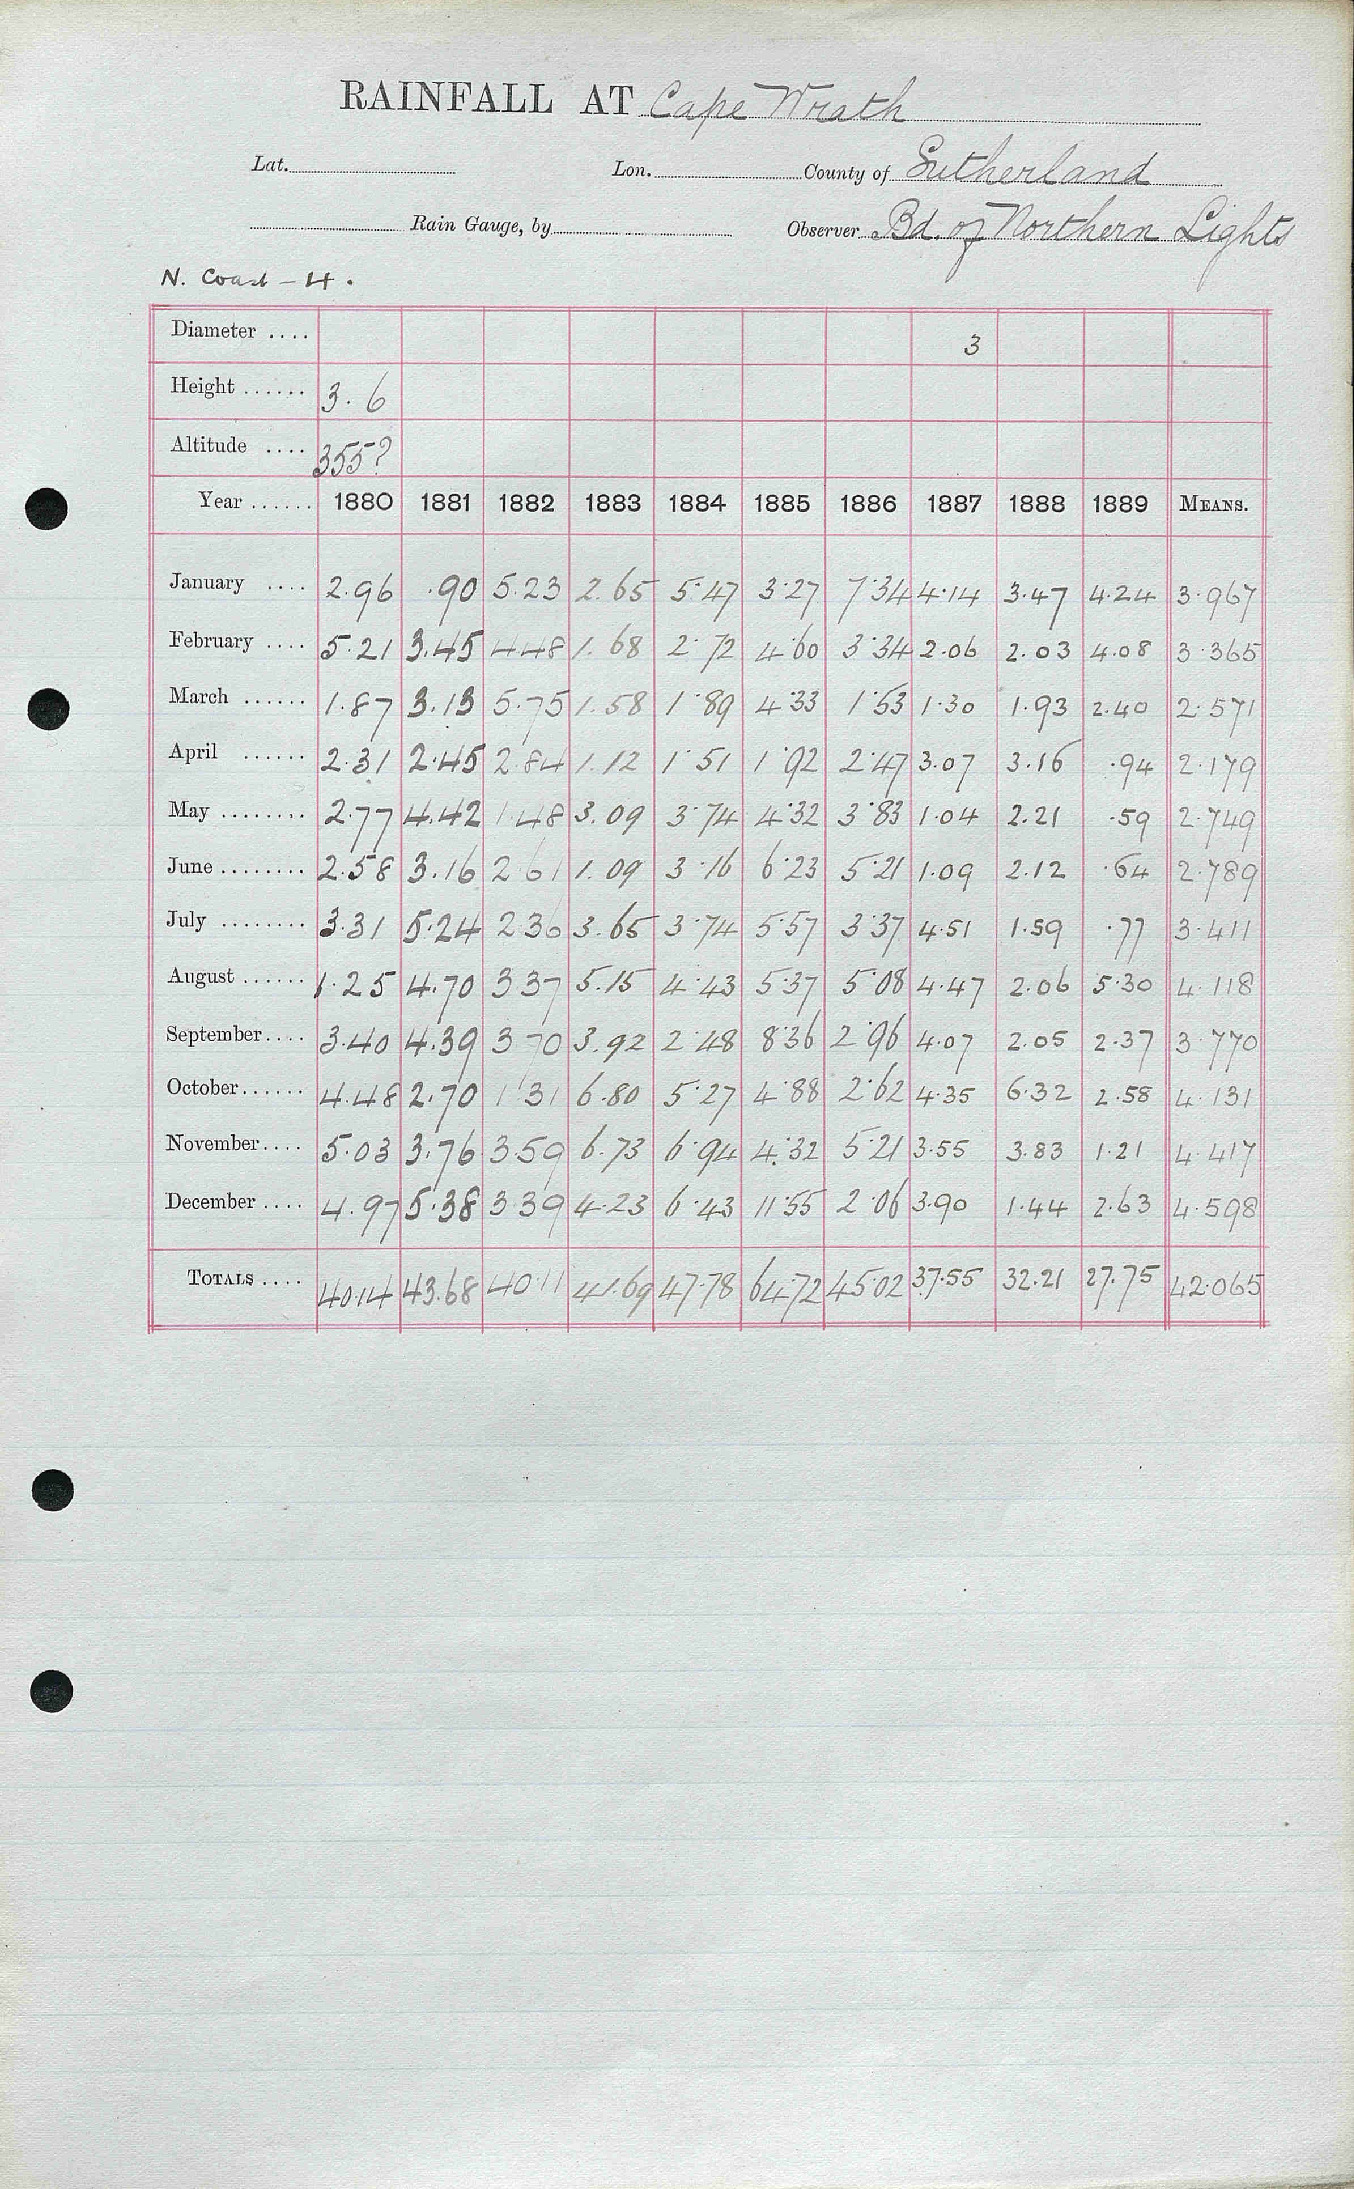 RAINFALL AT Cape Wrath
Lat. Lon. County of Sutherland
Rain Gauge, by Observer Bd. of Northern Lights
N. Coast - 4.
Diameter .... 3
Height ...... 3.6
Altitude .... 355?
Year ...... 1880 1881 1882 1883 1884 1885 1886 1887 1888 1889 MEANS.
January .... 2.96 .90 5.23 2.65 5.47 3.27 7.34 4.14 3.47 4.24 3.967
February .... 5.21 3.45 4.48 1.68 2.72 4.60 3.34 2.06 2.03 4.08 3.365
March ...... 1.87 3.13 5.75 1.58 1.89 4.33 1.53 1.30 1.93 2.40 2.571
April ...... 2.31 2.45 2.84 1.12 1.51 1.92 2.47 3.07 3.16 .94 2.179
May ........ 2.77 4.42 1.48 3.09 3.74 4.32 3.83 1.04 2.21 .59 2.749
June ........ 2.58 3.16 2.61 1.09 3.16 6.23 5.21 1.09 2.12 .64 2.789
July ........ 3.31 5.24 2.36 3.65 3.74 5.57 3.37 4.51 1.59 .77 3.411
August ...... 1.25 4.70 3.37 5.15 4.43 5.37 5.08 4.47 2.06 5.30 4.118
September.... 3.40 4.39 3.70 3.92 2.48 8.36 2.96 4.07 2.05 2.37 3.770
October...... 4.48 2.70 1.31 6.80 5.27 4.88 2.62 4.35 6.32 2.58 4.131
November.... 5.03 3.76 3.59 6.73 6.94 4.32 5.21 3.55 3.83 1.21 4.417
December .... 4.97 5.38 3.39 4.23 6.43 11.55 2.06 3.90 1.44 2.63 4.598
TOTALS .... 40.14 43.68 40.11 41.69 47.78 64.72 45.02 37.55 32.21 27.75 42.065